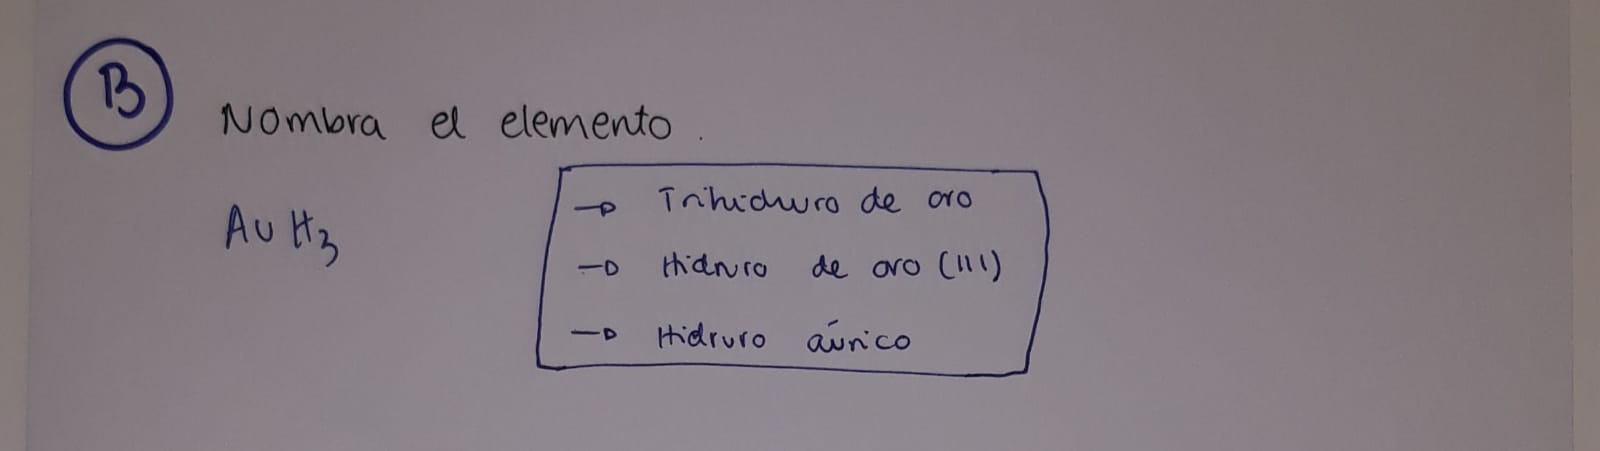 B
Nombra el elemento.
AuH3
→ Trihidruro de oro
→ Hidruro de oro (III)
→ Hidruro áurico